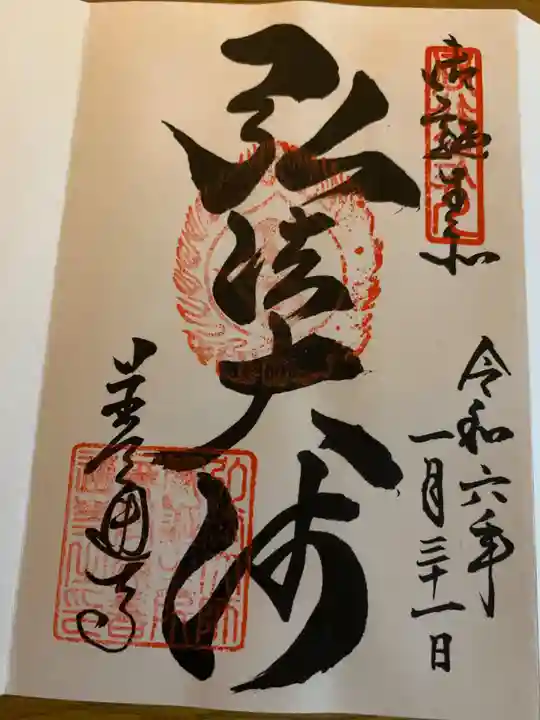 御誕生和
令和六年
一月三十一日
弘法大師
善通寺